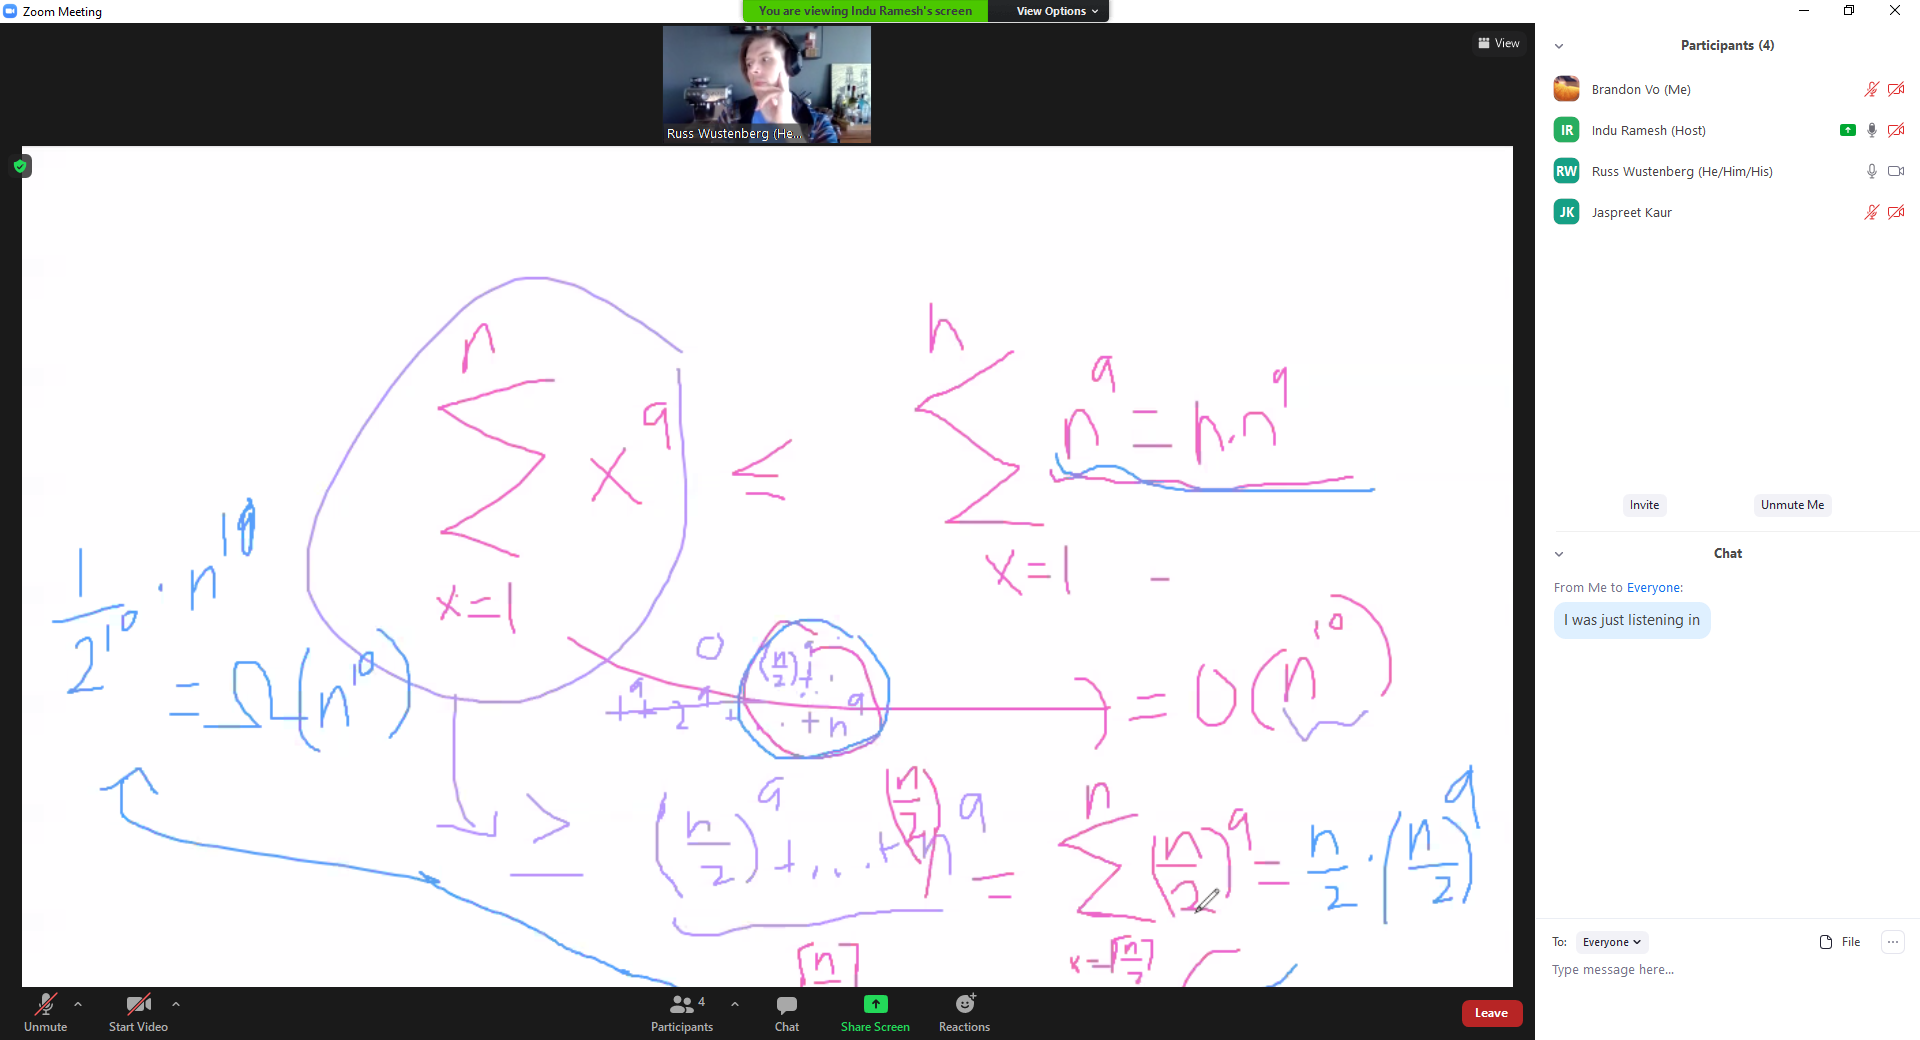 Zoom Meeting
You are viewing Indu Ramesh's screen
View Options
View
Russ Wustenberg (He...
n
Σ x^9 ≤ Σ n^9 = n·n^9
x=1
n
x=1 -
1/2^10 · n^10
= Ω(n^10)
0
+ 2^9 + (n/2)^9 + . . . + n^9
) = O(n^10)
≥ (n/2)^9 + ... + n^9 = Σ (n/2)^9 = n/2 · (n/2)^9
n
x=⌈n/2⌉
Participants (4)
Brandon Vo (Me)
IR Indu Ramesh (Host)
RW Russ Wustenberg (He/Him/His)
JK Jaspreet Kaur
Invite
Unmute Me
Chat
From Me to Everyone:
I was just listening in
To: Everyone
File
...
Type message here...
Unmute
Start Video
Participants
4
Chat
Share Screen
Reactions
Leave